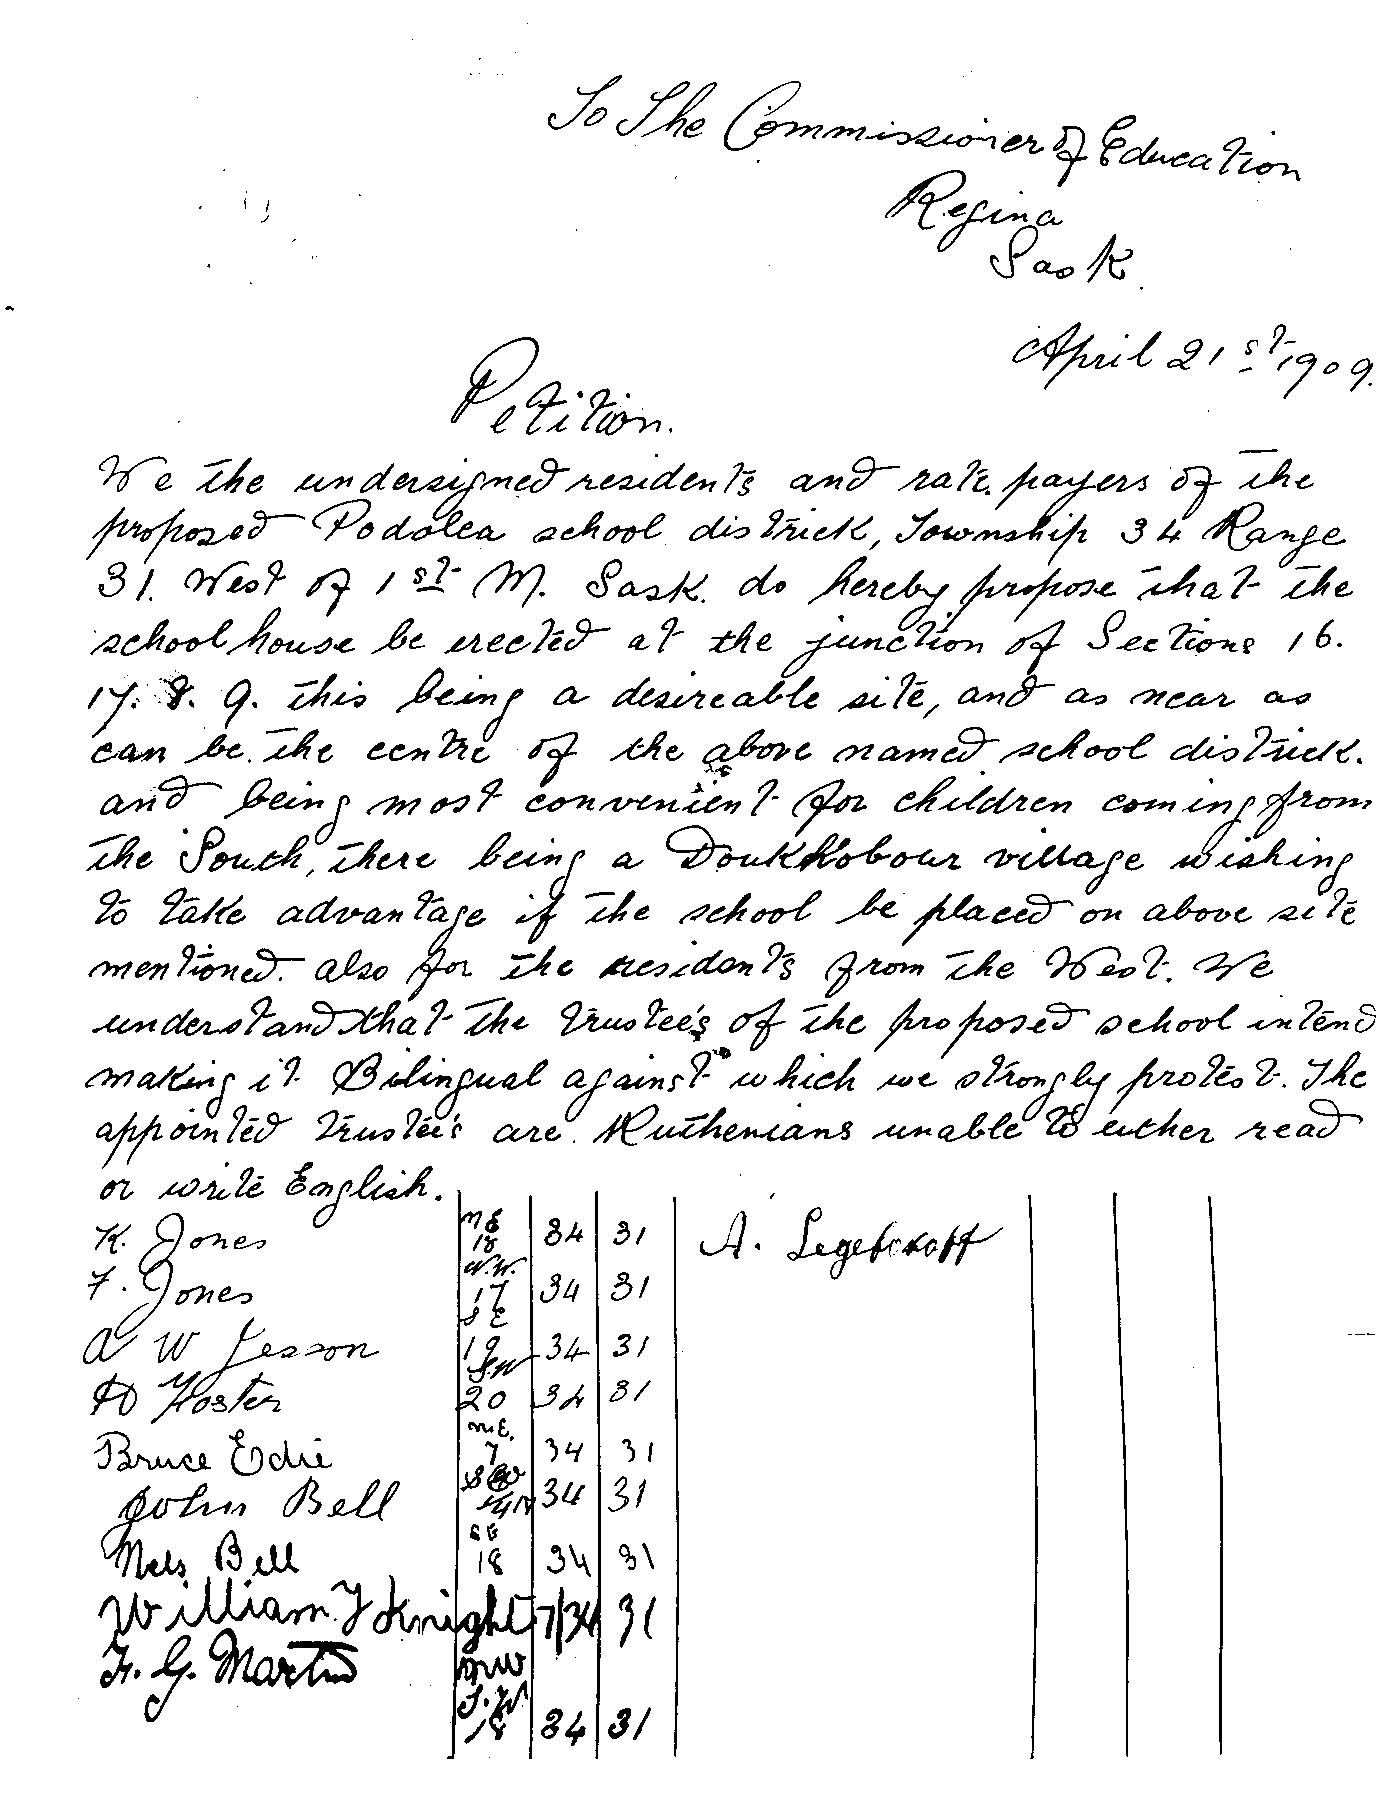 To The Commissioner of Education
Regina
Sask.
April 21st 1909.
Petition.
We the undersigned residents and rate payers of the
proposed Podolea school districk, Township 34 Range
31. West of 1st M. Sask. do hereby propose that the
school house be erected at the junction of Sections 16.
17. 8. 9. this being a desireable site, and as near as
can be the centre of the above named school districk.
and being most convenient for children coming from
the South, there being a Doukhobour village wishing
to take advantage if the school be placed on above site
mentioned. also for the residents from the West. We
understand that the trustee's of the proposed school intend
making it Bilingual against which we strongly protest. The
appointed trustee's are Ruthenians unable to either read
or write English.
K. Jones NE 18 34 31 A. Legebokoff
F. Jones N.W. 17 34 31
A W Jesson SE 19 34 31
H Foster S.W 20 34 31
Bruce Edie N.E. 7 34 31
John Bell 34 31
Nels Bell SE 18 34 31
William F Knight 7 34 31
F. G. Martin NW
S.W 18 34 31